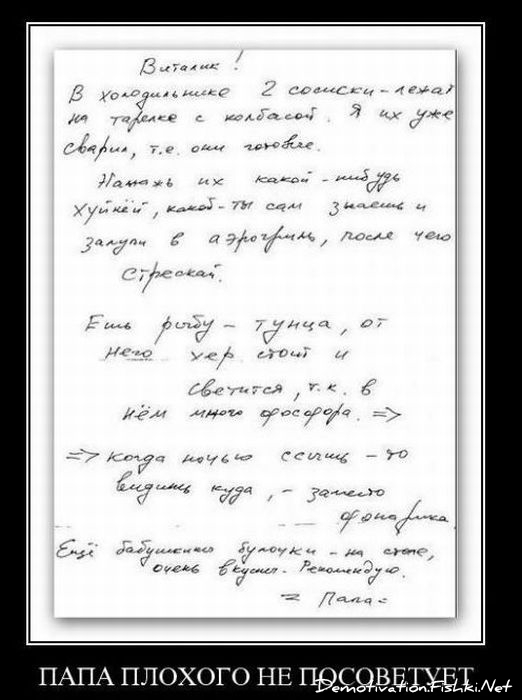 Виталик!
В холодильнике 2 сосиски - лежат
на тарелке с колбасой. Я их уже
сварил, т.е. они готовые.
Намажь их какой-нибудь
хуйнёй, какой - ты сам знаешь и
залупи в аэрогриль, после чего
стрескай.
Ешь рыбу - тунца, от
него хер стоит и
светится, т.к. в
нём много фосфора. =>
=> когда ночью ссышь - то
видишь куда, - заместо
фонарика.
Ещё бабушкины булочки - на столе,
очень вкусно. Рекомендую.
= Папа =
ПАПА ПЛОХОГО НЕ ПОСОВЕТУЕТ
Demotivation.Fishki.Net